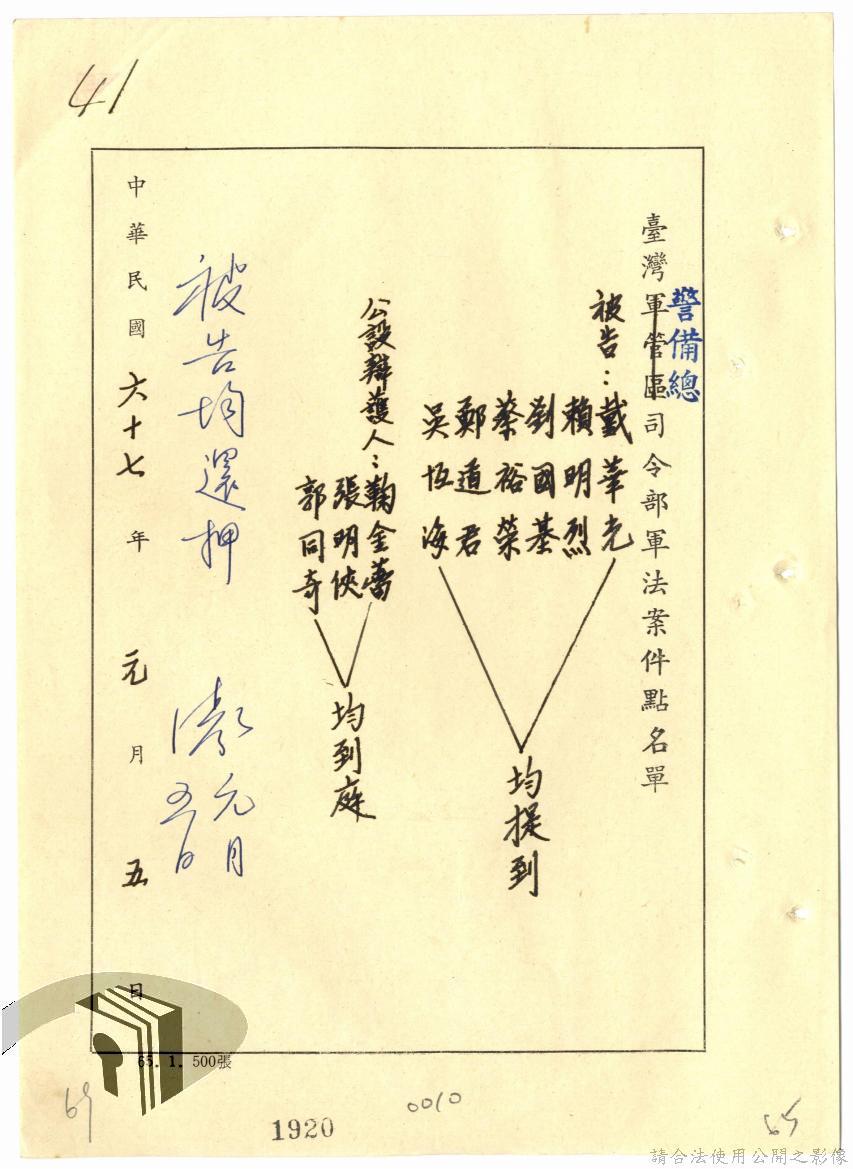 41
臺灣軍管區司令部軍法案件點名單
警備總
被告：戴華光
賴明烈
劉國基
蔡裕榮
鄭道君
吳恆海
均提到
公設辯護人：鞠金蕾
張明俠
郭同奇
均到庭
被告均還押
元月
五日
中華民國六十七年元月五日
65. 1. 500張
69
1920
0010
65
請合法使用公開之影像